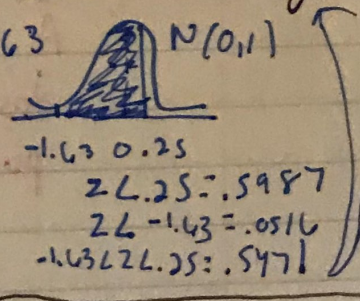 63 N(0,1)
-1.63 0.25
Z<.25=.5987
Z<-1.63=.0516
-1.63<Z<.25=.5471